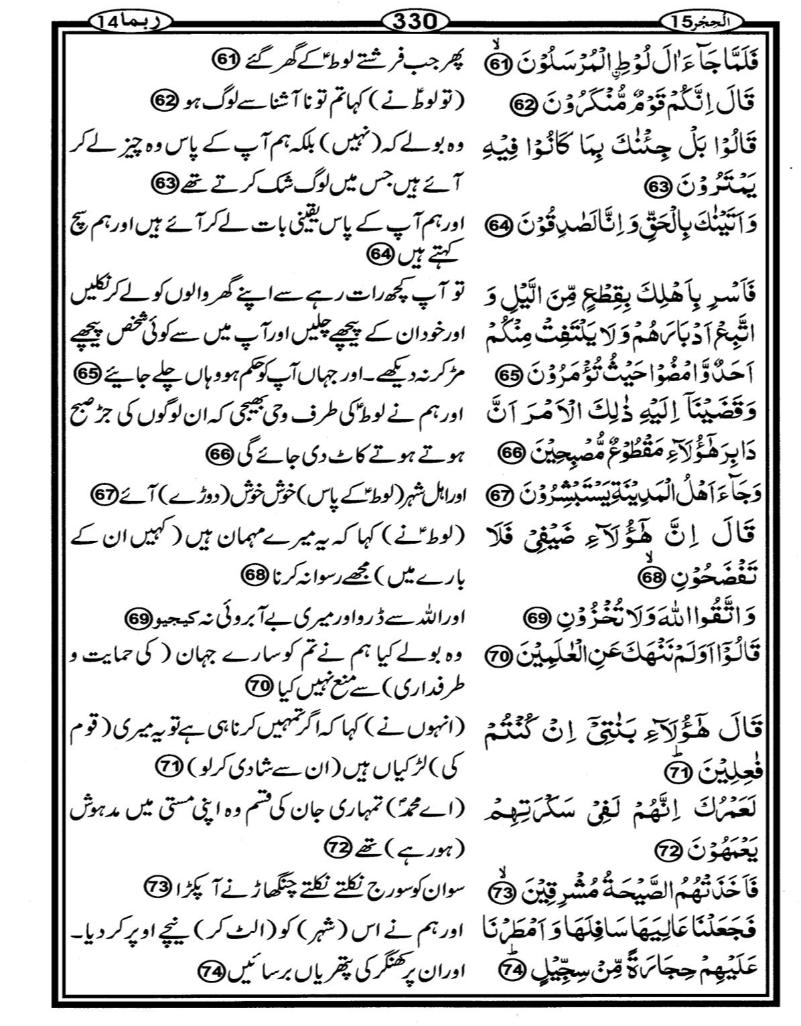 الحجر15 330 ربما14
فَلَمَّا جَآءَ اٰلَ لُوْطِ ِ۟الْمُرْسَلُوْنَ ۙ61
پھر جب فرشتے لوطؑ کے گھر گئے 61
قَالَ اِنَّكُمْ قَوْمٌ مُّنْكَرُوْنَ 62
(تو لوطؑ نے) کہا تم تو نا آشنا سے لوگ ہو 62
قَالُوْا بَلْ جِئْنٰكَ بِمَا كَانُوْا فِيْهِ
يَمْتَرُوْنَ 63
وہ بولے کہ (نہیں) بلکہ ہم آپ کے پاس وہ چیز لے کر
آئے ہیں جس میں لوگ شک کرتے تھے 63
وَاَتَيْنٰكَ بِالْحَقِّ وَ اِنَّا لَصٰدِقُوْنَ 64
اور ہم آپ کے پاس یقینی بات لے کر آئے ہیں اور ہم سچ
کہتے ہیں 64
فَاَسْرِ بِاَهْلِكَ بِقِطْعٍ مِّنَ الَّيْلِ وَ
اتَّبِعْ اَدْبَارَهُمْ وَلَا يَلْتَفِتْ مِنْكُمْ
اَحَدٌ وَّامْضُوْا حَيْثُ تُؤْمَرُوْنَ 65
تو آپ کچھ رات رہے سے اپنے گھر والوں کو لے کر نکلیں
اور خود ان کے پیچھے چلیں اور آپ میں سے کوئی شخص پیچھے
مڑ کر نہ دیکھے۔ اور جہاں آپ کو حکم ہو وہاں چلے جایئے 65
وَقَضَيْنَاۤ اِلَيْهِ ذٰلِكَ الْاَمْرَ اَنَّ
دَابِرَ هٰۤؤُلَآءِ مَقْطُوْعٌ مُّصْبِحِيْنَ 66
اور ہم نے لوطؑ کی طرف وحی بھیجی کہ ان لوگوں کی جڑ صبح
ہوتے ہوتے کاٹ دی جائے گی 66
وَجَآءَ اَهْلُ الْمَدِيْنَةِ يَسْتَبْشِرُوْنَ 67
اور اہل شہر (لوطؑ کے پاس) خوش خوش (دوڑے) آئے 67
قَالَ اِنَّ هٰۤؤُلَآءِ ضَيْفِيْ فَلَا
تَفْضَحُوْنِ ۙ68
(لوطؑ نے) کہا کہ یہ میرے مہمان ہیں (کہیں ان کے
بارے میں) مجھے رسوا نہ کرنا 68
وَاتَّقُوا اللّٰهَ وَلَا تُخْزُوْنِ 69
اور اللہ سے ڈرو اور میری بے آبروئی نہ کیجیو 69
قَالُوْۤا اَوَلَمْ نَنْهَكَ عَنِ الْعٰلَمِيْنَ 70
وہ بولے کیا ہم نے تم کو سارے جہان (کی حمایت و
طرفداری) سے منع نہیں کیا 70
قَالَ هٰۤؤُلَآءِ بَنٰتِيْۤ اِنْ كُنْتُمْ
فٰعِلِيْنَ ؕ71
(انہوں نے) کہا کہ اگر تمہیں کرنا ہی ہے تو یہ میری (قوم
کی) لڑکیاں ہیں (ان سے شادی کر لو) 71
لَعَمْرُكَ اِنَّهُمْ لَفِيْ سَكْرَتِهِمْ
يَعْمَهُوْنَ 72
(اے محمدؐ) تمہاری جان کی قسم وہ اپنی مستی میں مدہوش
(ہو رہے) تھے 72
فَاَخَذَتْهُمُ الصَّيْحَةُ مُشْرِقِيْنَ ۙ73
سو ان کو سورج نکلتے نکلتے چنگھاڑ نے آ پکڑا 73
فَجَعَلْنَا عَالِيَهَا سَافِلَهَا وَ اَمْطَرْنَا
عَلَيْهِمْ حِجَارَةً مِّنْ سِجِّيْلٍ ؕ74
اور ہم نے اس (شہر) کو (الٹ کر) نیچے اوپر کر دیا۔
اور ان پر کھنگر کی پتھریاں برسائیں 74